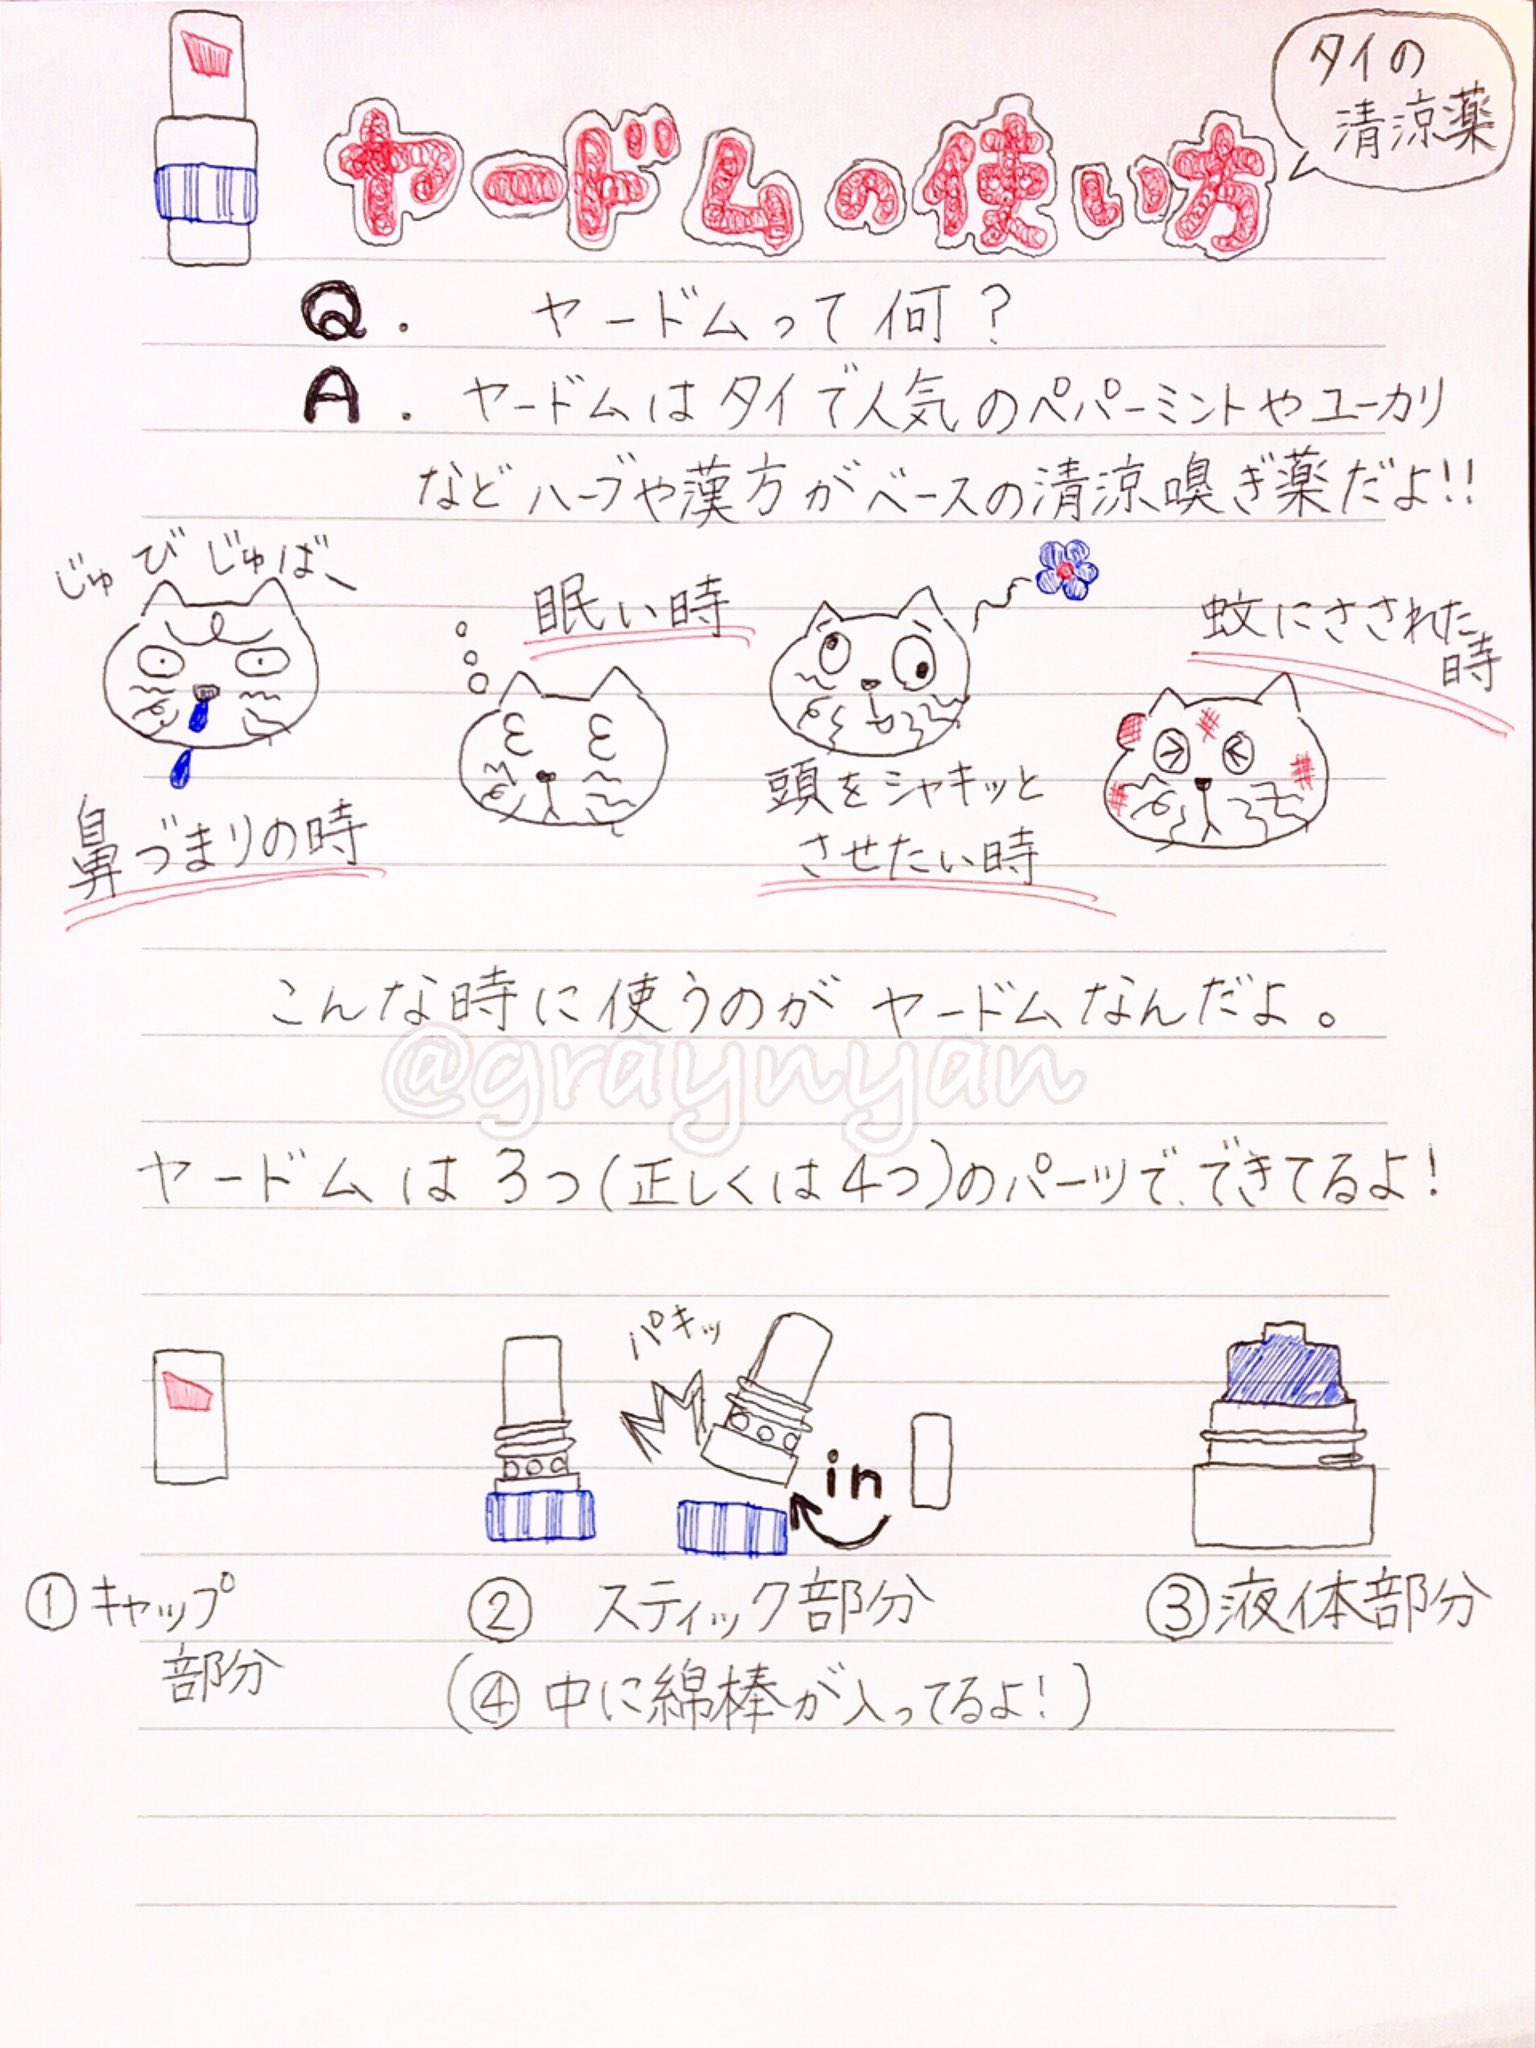 タイの
清涼薬
ヤードムの使い方
Q. ヤードムって何？
A. ヤードムはタイで人気のペパーミントやユーカリ
などハーブや漢方がベースの清涼嗅ぎ薬だよ!!
じゅびじゅばー
鼻づまりの時
眠い時
頭をシャキッと
させたい時
蚊にさされた
時
こんな時に使うのがヤードムなんだよ。
@graynyan
ヤードムは3つ(正しくは4つ)のパーツで、できてるよ!
パキッ
in
①キャップ
部分
② スティック部分
(④ 中に綿棒が入ってるよ!)
③液体部分